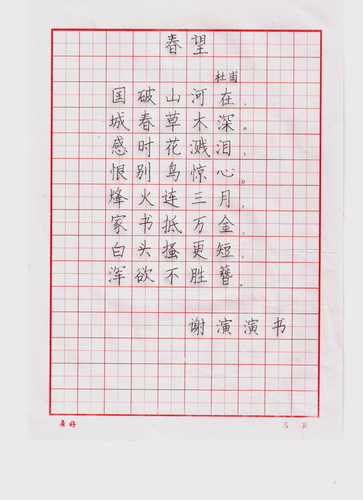 春望
杜甫
国破山河在，
城春草木深。
感时花溅泪，
恨别鸟惊心。
烽火连三月，
家书抵万金，
白头搔更短，
浑欲不胜簪。
谢演演书